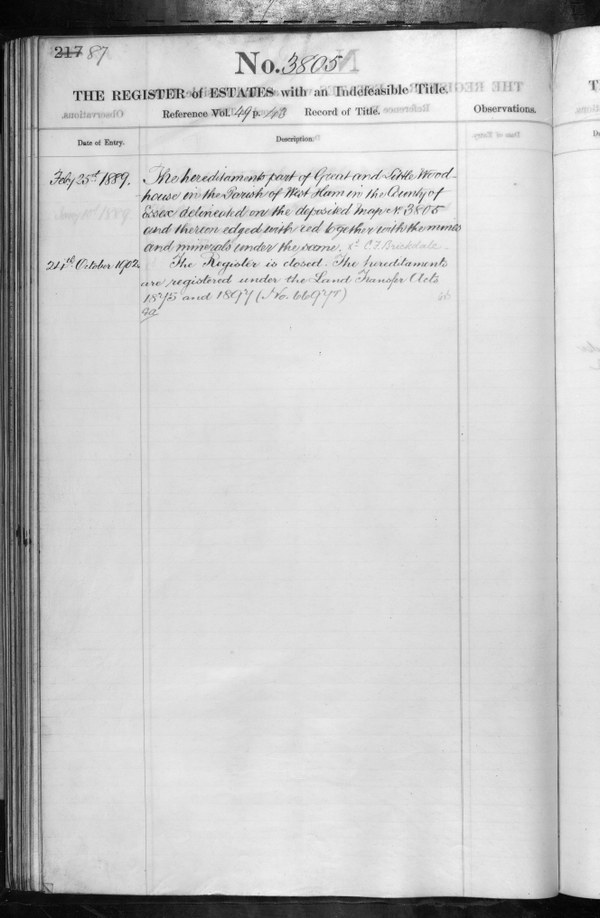 217 87
No. 3805
THE REGISTER of ESTATES with an Indefeasible Title.
Reference Vol. 49 p. 43 Record of Title. Observations.
Date of Entry. Description.
Feby 25th 1889. The hereditaments part of Great and Little Wood-
house in the Parish of West Ham in the County of
Essex delineated on the deposited map No. 3805
and thereon edged with red together with the mines
and minerals under the same. C F Brickdale.
24th October 1902. The Register is closed. The hereditaments
are registered under the Land Transfer Acts
1875 and 1897 (No. 66979)